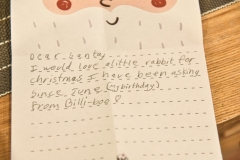 Dear santa
I would love a little rabbit for
christmas I have been asking
since June (my birthday)
From Billi-boo